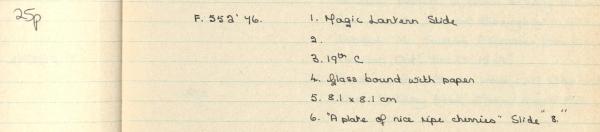 25p
F. 552' 76. 1. Magic Lantern Slide
2.
3. 19th C
4. Glass bound with paper
5. 8.1 x 8.1 cm
6. "A plate of nice ripe cherries" Slide "8."